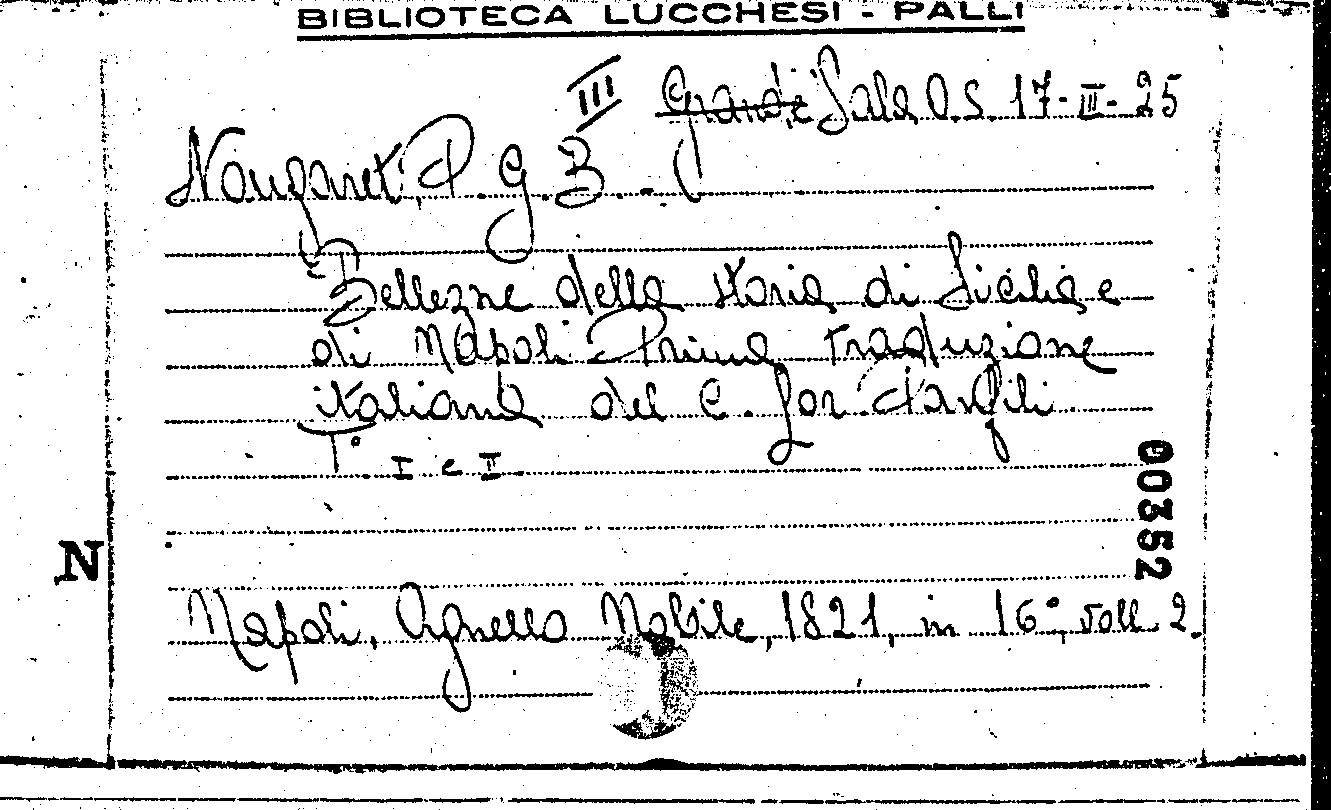 BIBLIOTECA LUCCHESI - PALLI
III Grande Sala O.S. 17-III-25
Nougaret, P. G. B. -
Bellezze della storia di Sicilia e
di Napoli Prima traduzione
italiana del C. Gor.
T° I e II
00352
N
Napoli, Agnello Nobile, 1821, in 16°, voll. 2.